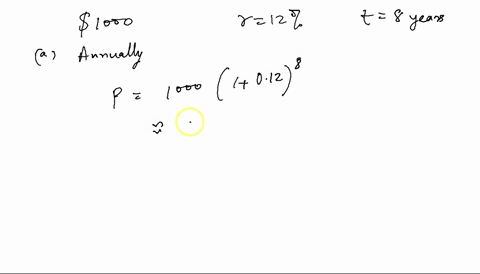 $1000 r=12% t=8 years
(a) Annually
P = 1000 (1+0.12)^8
≈